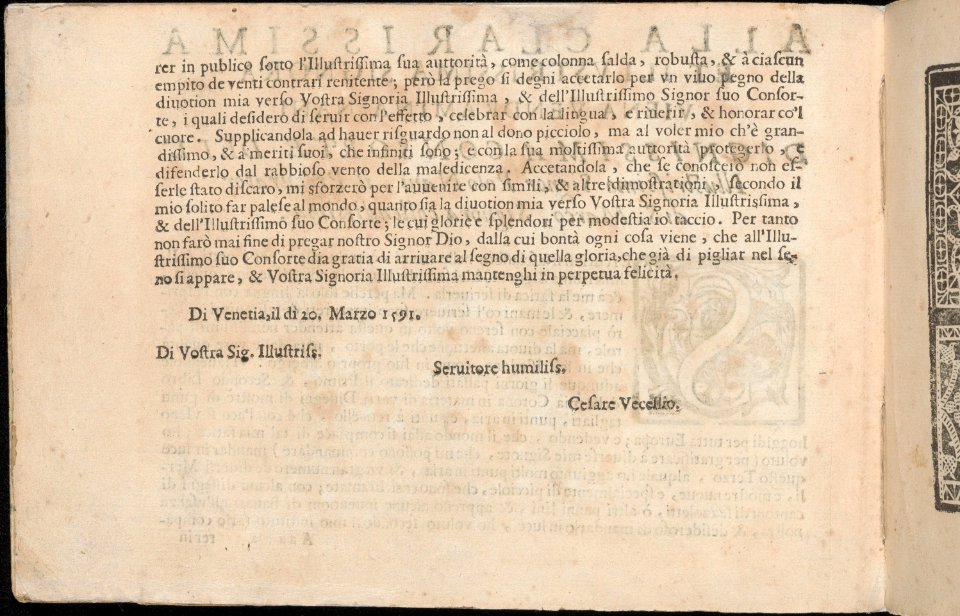 rer in publico sotto l'Illustrissima sua auttorità, come colonna salda, robusta, & à ciascun
empito de venti contrari renitente; però la prego si degni accettarlo per vn viuo pegno della
diuotion mia verso Vostra Signoria Illustrissima, & dell'Illustrissimo Signor suo Consor-
te, i quali desidero di seruir con l'effetto, celebrar con la lingua, e riuerir, & honorar co'l
cuore. Supplicandola ad hauer risguardo non al dono picciolo, ma al voler mio ch'è gran-
dissimo, & a meriti suoi, che infiniti sono; e con la sua moltissima auttorità protegerlo, e
difenderlo dal rabbioso vento della maledicenza. Accetandola, che se conoscerò non es-
serle stato discaro, mi sforzerò per l'auuenire con simili, & altre dimostrationi, secondo il
mio solito far palese al mondo, quanto sia la diuotion mia verso Vostra Signoria Illustrissima,
& dell'Illustrissimo suo Consorte; le cui glorie e splendori per modestia io taccio. Per tanto
non farò mai fine di pregar nostro Signor Dio, dalla cui bontà ogni cosa viene, che all'Illu-
strissimo suo Consorte dia gratia di arriuare al segno di quella gloria, che già di pigliar nel se-
no si appare, & Vostra Signoria Illustrissima mantenghi in perpetua felicità.
Di Venetia, il dì 20. Marzo 1591.
Di Vostra Sig. Illustriss.
Seruitore humiliss.
Cesare Vecellio.